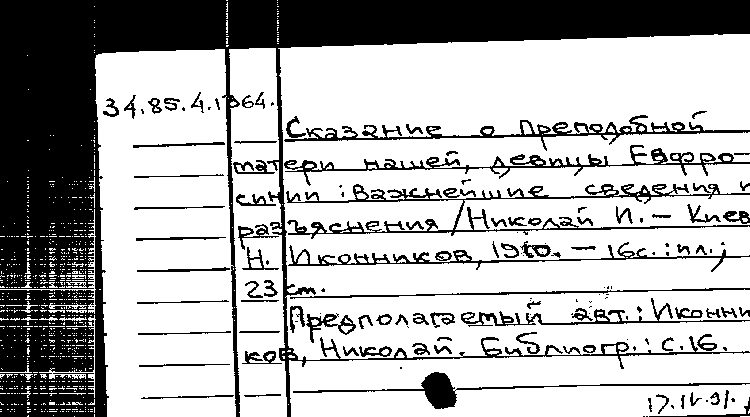 34.85.4.1364.
Сказание о преподобной
матери нашей, девицы Евфро-
синии : Важнейшие сведения и
разъяснения / Николай И. – Киев
Н. Иконников, 1910. – 16с. : ил.;
23 см.
Предполагаемый авт.: Иконни
ков, Николай. Библиогр.: с.16.
17.IV.91.